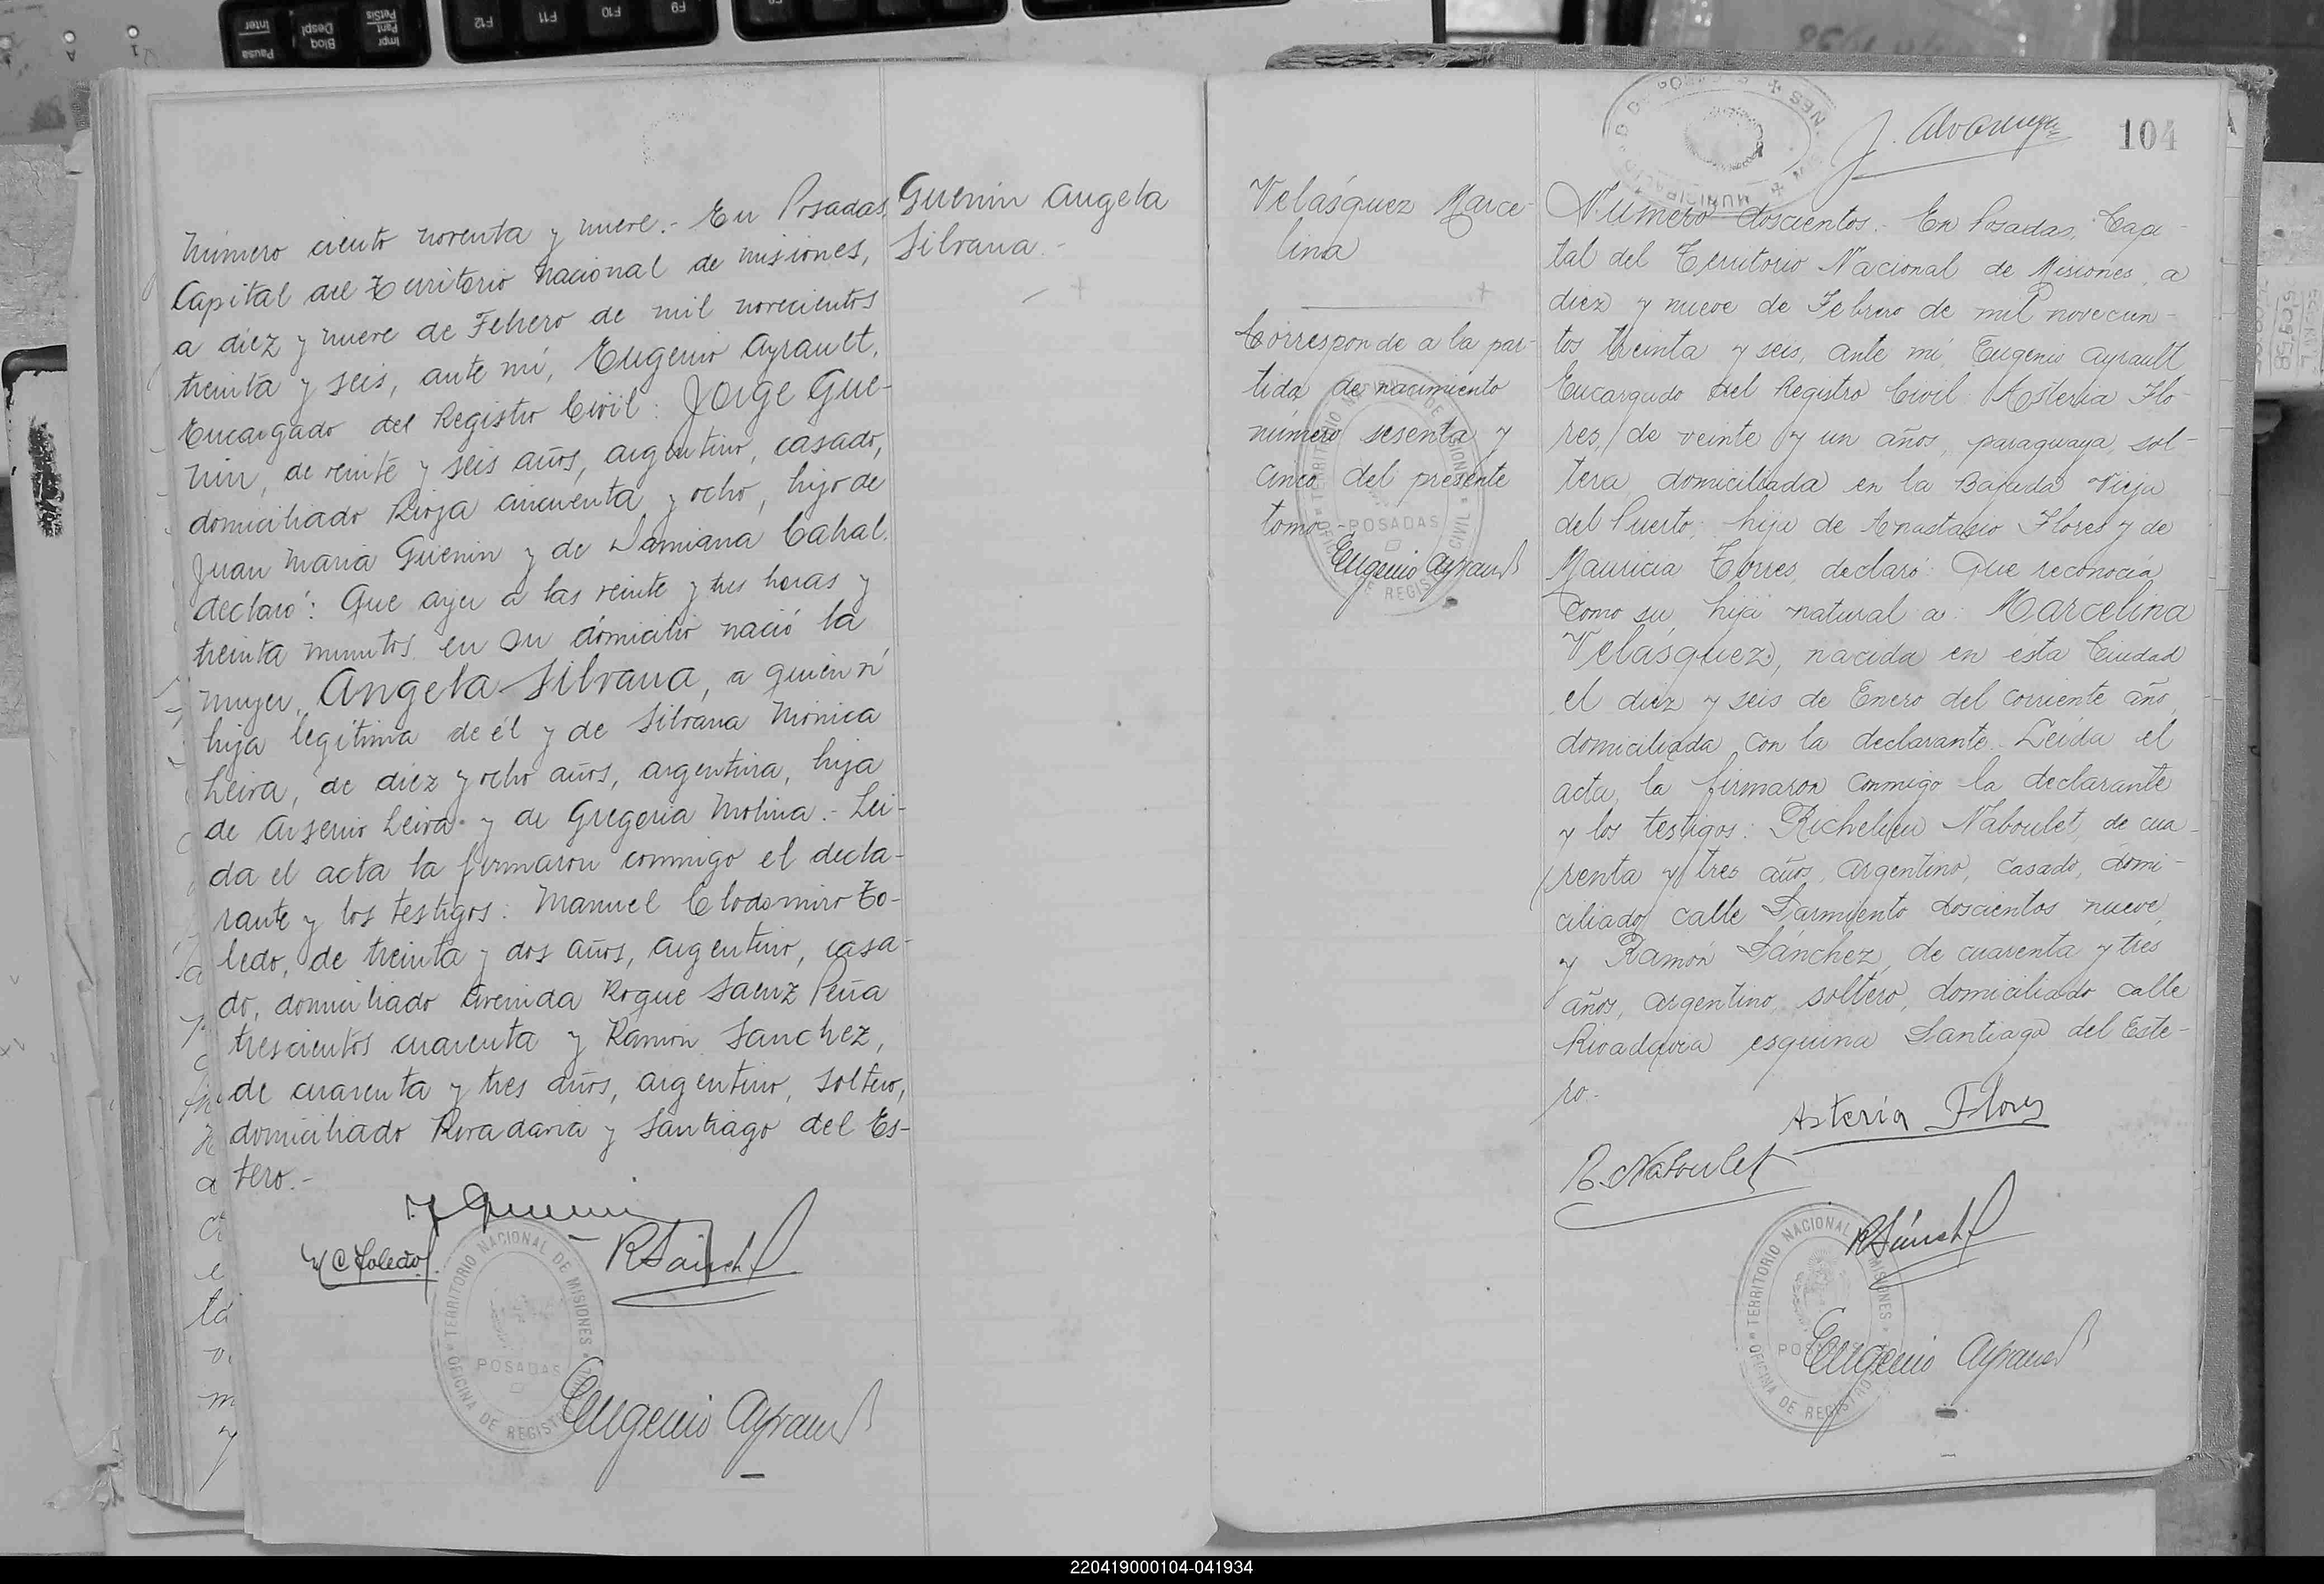 Guenin Angela
Silvana.-
Número ciento noventa y nueve.- En Posadas,
Capital del Territorio Nacional de Misiones,
a diez y nueve de Febrero de mil novecientos
treinta y seis, ante mí, Eugenio Ayrault,
Encargado del Registro Civil: Jorge Gue-
nin, de veinte y seis años, argentino, casado,
domiciliado Rioja cincuenta y ocho, hijo de
Juan Maria Guenin y de Damiana Cabral.
declaró: Que ayer a las veinte y tres horas y
treinta minutos en su domicilio nació la
mujer, Angela Silvana, a quien ví
hija legítima de él y de Silvana Mónica
Leiva, de diez y ocho años, argentina, hija
de Arsenio Leiva y de Gregoria Molina.- Leí-
da el acta la firmaron conmigo el decla-
rante y los testigos: Manuel Clodomiro To-
ledo, de treinta y dos años, argentino, casa-
do, domiciliado Avenida Roque Saenz Peña
trescientos cuarenta y Ramón Sanchez,
de cuarenta y tres años, argentino, soltero,
domiciliado Rivadavia y Santiago del Es-
tero.-
J Guenin
M C Toledo
R Sánchez
TERRITORIO NACIONAL DE MISIONES
POSADAS
OFICINA DE REGISTRO CIVIL
Eugenio Ayrault
104
Velásquez Marce-
lina
Corresponde a la par-
tida de nacimiento
número sesenta y
cinco del presente
tomo.-
Eugenio Ayrault
TERRITORIO NACIONAL DE MISIONES
POSADAS
OFICINA DE REGISTRO CIVIL
Número doscientos. En Posadas, Capi-
tal del Territorio Nacional de Misiones, a
diez y nueve de Febrero de mil novecien-
tos treinta y seis, ante mí, Eugenio Ayrault
Encargado del Registro Civil: Asteria Flo-
res, de veinte y un años, paraguaya, sol-
tera domiciliada en la Bajada Vieja
del Puerto, hija de Anastasio Flores y de
Mauricia Torres, declaró: Que reconocía
como su hija natural a: Marcelina
Velásquez, nacida en ésta Ciudad
el diez y seis de Enero del corriente año,
domiciliada con la declarante. Leída el
acta, la firmaron conmigo la declarante
y los testigos: Richelieu Naboulet, de cua-
renta y tres años, argentino, casado, domi-
ciliado calle Sarmiento doscientos nueve,
y Ramón Sánchez, de cuarenta y tres
años, argentino, soltero, domiciliado calle
Rivadavia esquina Santiago del Este-
ro.-
Asteria Flores
R. Naboulet
R Sánchez
TERRITORIO NACIONAL DE MISIONES
POSADAS
OFICINA DE REGISTRO CIVIL
Eugenio Ayrault
220419000104-041934